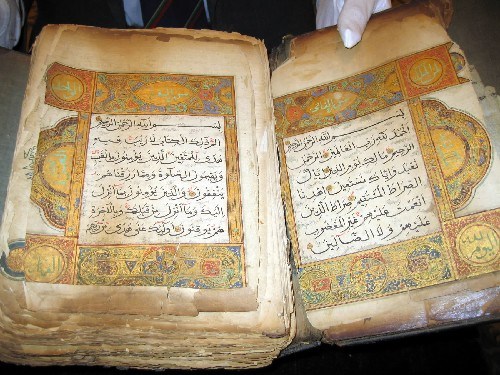 بسم الله الرحمن الرحيم
الحمد لله رب العالمين الرحمن
الرحيم مالك يوم الدين اياك
نعبد واياك نستعين اهدنا
الصراط المستقيم صراط الذين
انعمت عليهم غير المغضوب
عليهم ولا الضالين
بسم الله الرحمن الرحيم
الم ذلك الكتاب لا ريب فيه
هدى للمتقين الذين يؤمنون بالغيب
ويقيمون الصلوة ومما رزقناهم
ينفقون والذين يؤمنون بما انزل
اليك وما انزل من قبلك وبالآخرة
هم يوقنون اولئك على هدى من ربهم